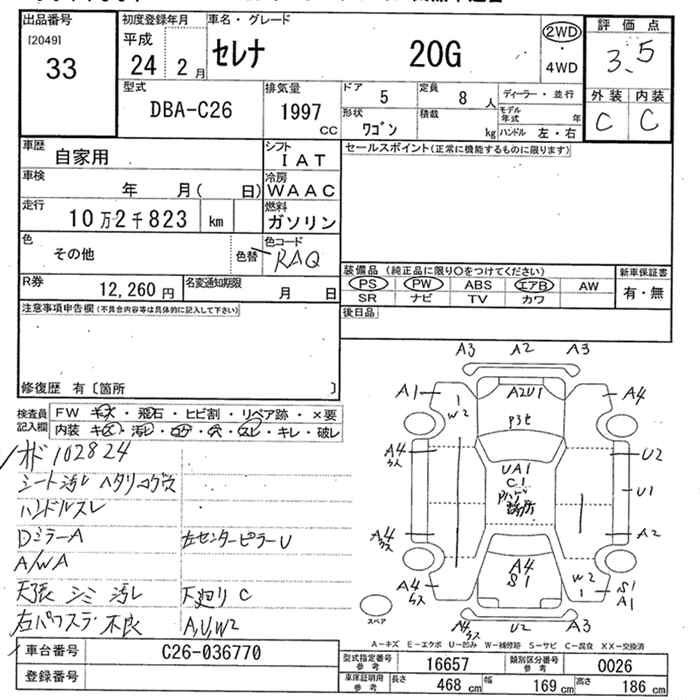 出品番号
[2049]
33
初度登録年月
平成
24 2月
車名・グレード
セレナ 20G
2WD
・
4WD
評価点
3.5
外装 内装
C C
型式
DBA-C26
排気量
1997 cc
ドア 5
定員 8人
ディーラー・並行
形状
ワゴン
積載 kg
モデル年式 年
ハンドル 左・右
車歴
自家用
シフト
IAT
セールスポイント(正常に機能するものに限ります)
車検 年 月( 日)
冷房
WAAC
走行
10万2千823 km
燃料
ガソリン
色
その他
色替
色コード
RAQ
装備品 (純正品に限り○をつけてください)
新車保証書
PS PW ABS エアB AW
有・無
SR ナビ TV カワ
R券
12,260円
名変通知期限
月 日
後日品
注意事項申告欄(不具合内容等は具体的に記入して下さい)
修復歴 有〔箇所 〕
検査員
記入欄
FW キズ・飛石・ヒビ割・リペア跡・×要
内装 キズ・汚レ・コゲ・穴・スレ・キレ・破レ
102824
シート汚レ ヘタリ コゲ穴
ハンドルスレ
Dミラー A
左センターピラーU
A/W A
天張 シミ 汚レ
下廻り C
右パワスラ 不良
A,U,W2
A3 A2 A3
A1 A2U1 A4
1
W2
A4 UA1 U2
C1
U1
A4 A2
A4 A4 W2 S1
S1 1 A1
スペア
A4 U2 A3
A-キズ E-エクボ U-凹み W-補修跡 S-サビ C-腐食 XX-交換済
車台番号
C26-036770
登録番号
型式指定番号
参考
16657
類別区分番号
参考
0026
車庫証明用
参考
長さ 468cm
幅 169cm
高さ 186cm